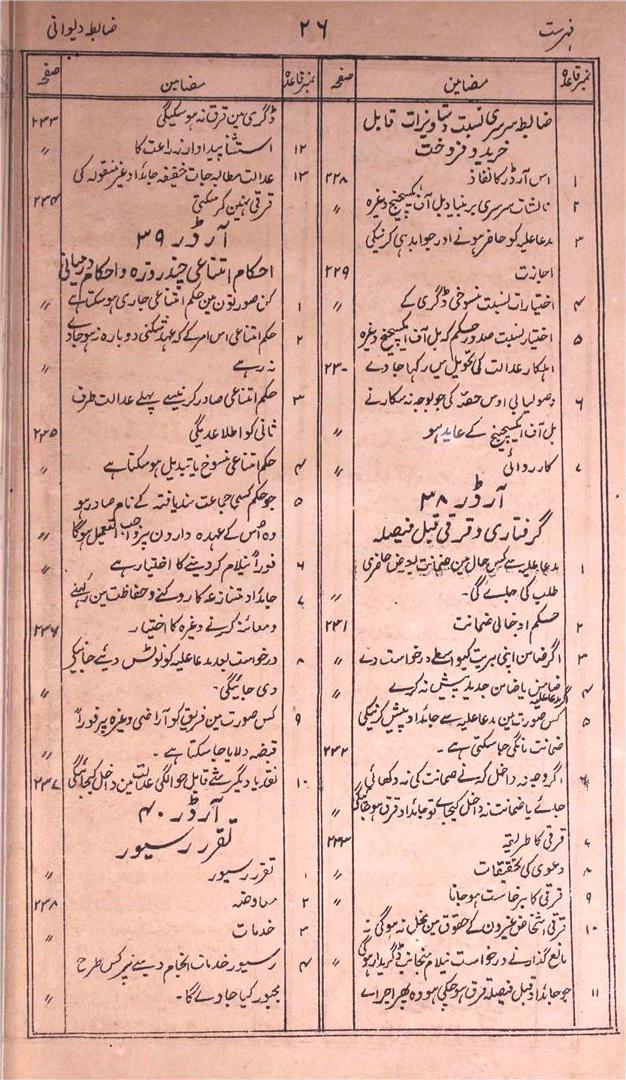 فہرست ۲۶ ضابطہ دیوانی
نمبر قاعدہ مضامین صفحہ
ضابطہ سرسری نسبت دستاویزات قابل
خرید و فروخت
۱ اس آرڈر کا نفاذ ۲۲۸
۲ نالشات سرسری بر بنیاد بل آف ایکسچینج وغیرہ 〃
۳ مدعا علیہ کو حاضر ہونے اور جوابدہی کرنیکی
اجازت ۲۲۹
۴ اختیارات نسبت منسوخی ڈگری کے 〃
۵ اختیار نسبت صدور حکم کہ بل آف ایکسچینج وغیرہ
اہلکار عدالت کی تحویل میں رکھا جاوے ۲۳۰
۶ وصولیابی اوس خصہ کی جو بوجہ نہ سکارنے
بل آف ایکسچینج کے عاید ہو 〃
۷ کارروائی 〃
آرڈر ۳۸
گرفتاری و قرقی قبل فیصلہ
۱ مدعا علیہ سے کس حال مین ضمانت بعوض حاضری
طلب کی جاے گی۔ 〃
۲ حکم ادخالی ضمانت ۲۳۱
۳ اگر ضامن اپنی بریت کیواسطے درخواست دے 〃
۴ اگر مدعا علیہ ضامن یا ضامن جدید پیش نہ کرے 〃
۵ کس صورت مین مدعا علیہ سے جائداد پیش کرنیکی
ضمانت مانگی جا سکتی ہے ۔ ۲۳۲
۶ اگر وجہ نہ داخل کرنے ضمانت کی نہ دکھائی
جائے یا ضمانت نہ داخل کیجاے تو جائداد قرق ہو جائیگی 〃
۷ قرقی کا طریقہ ۲۳۳
۸ دعوی کی تحقیقات 〃
۹ قرقی کا برخاست ہو جانا 〃
۱۰ قرقی اشخاص غیرون کے حقوق مین مخل نہ ہوگی نہ
مانع گذارنے درخواست نیلام منجانب ڈگریدار ہوگی 〃
۱۱ جو جائداد قبل فیصلہ قرق ہو چکی ہو وہ پھر اجراے
نمبر قاعدہ مضامین صفحہ
ڈگری مین قرق نہ ہو سکیگی ۲۳۳
۱۲ استثنا پیداوار زراعت کا 〃
۱۳ عدالت مطالبہ جات خفیفہ جائداد غیر منقولہ کی
قرقی نہین کر سکتی ۲۳۴
آرڈر ۳۹
احکام امتناعی چند روزہ و احکام درمیانی
۱ کن صورتون مین حکم امتناعی جاری ہو سکتا ہے 〃
۲ حکم امتناعی اس امر کے کہ عہد شکنی دوبارہ نہ ہو جاوے
نہ رہے 〃
۳ حکم امتناعی صادر کرنیسے پہلے عدالت طرف
ثانی کو اطلاعدیگی ۲۳۵
۴ حکم امتناعی منسوخ یا تبدیل ہو سکتا ہے 〃
۵ جو حکم کسی جماعت سند یافتہ کے نام صادر ہو
وہ اُس کے عہدہ دارون پر واجب التعمیل ہوگا 〃
۶ فوراً نیلام کر دینے کا اختیار ہے 〃
۷ جائداد متنازعہ کا روکنے و حفاظت مین رکھنے
و معائنہ کرنے وغیرہ کا اختیار ۲۳۶
۸ درخواست بعد مدعا علیہ کو نوٹس دیئے جانیکے
دی جائیگی۔ 〃
۹ کس صورت مین فریق کو آراضی وغیرہ پر فوراً
قبضہ دلایا جا سکتا ہے ۔ 〃
۱۰ نقد یا دیگر شے قابل حوالگی عدالت مین داخل کیجائیگی ۲۳۷
آرڈر ۴۰
تقرر رسیور
۱ تقرر رسیور 〃
۲ معاوضہ ۲۳۸
۳ خدمات 〃
۴ رسیور خدمات انجام دینے پر کس طرح
مجبور کیا جاوے گا۔ 〃